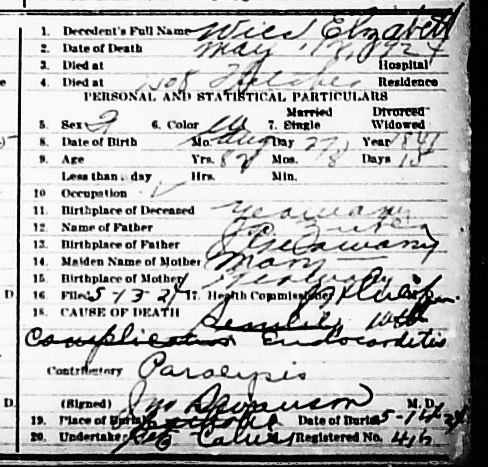 1. Decedent's Full Name Elizabeth
2. Date of Death May 12, 1924
3. Died at Hospital
4. Died at Residence
PERSONAL AND STATISTICAL PARTICULARS
Married Divorced
5. Sex F 6. Color W 7. Single Widowed
8. Date of Birth Mo. Aug Day 27 Year 1841
9. Age Yrs. 82 Mos. 8 Days 15
Less than a day Hrs. Min.
10 Occupation
11. Birthplace of Deceased Germany
12. Name of Father
13. Birthplace of Father Germany
14. Maiden Name of Mother Mary
15. Birthplace of Mother Germany
D. 16 Filed 5-13-24 17. Health Commissioner
18. CAUSE OF DEATH
Senility with
Complications Endocarditis
Contributory Paralysis
D. (Signed) Jno M.D.
19. Place of Burial Date of Burial 5-14-24
20. Undertaker Registered No.